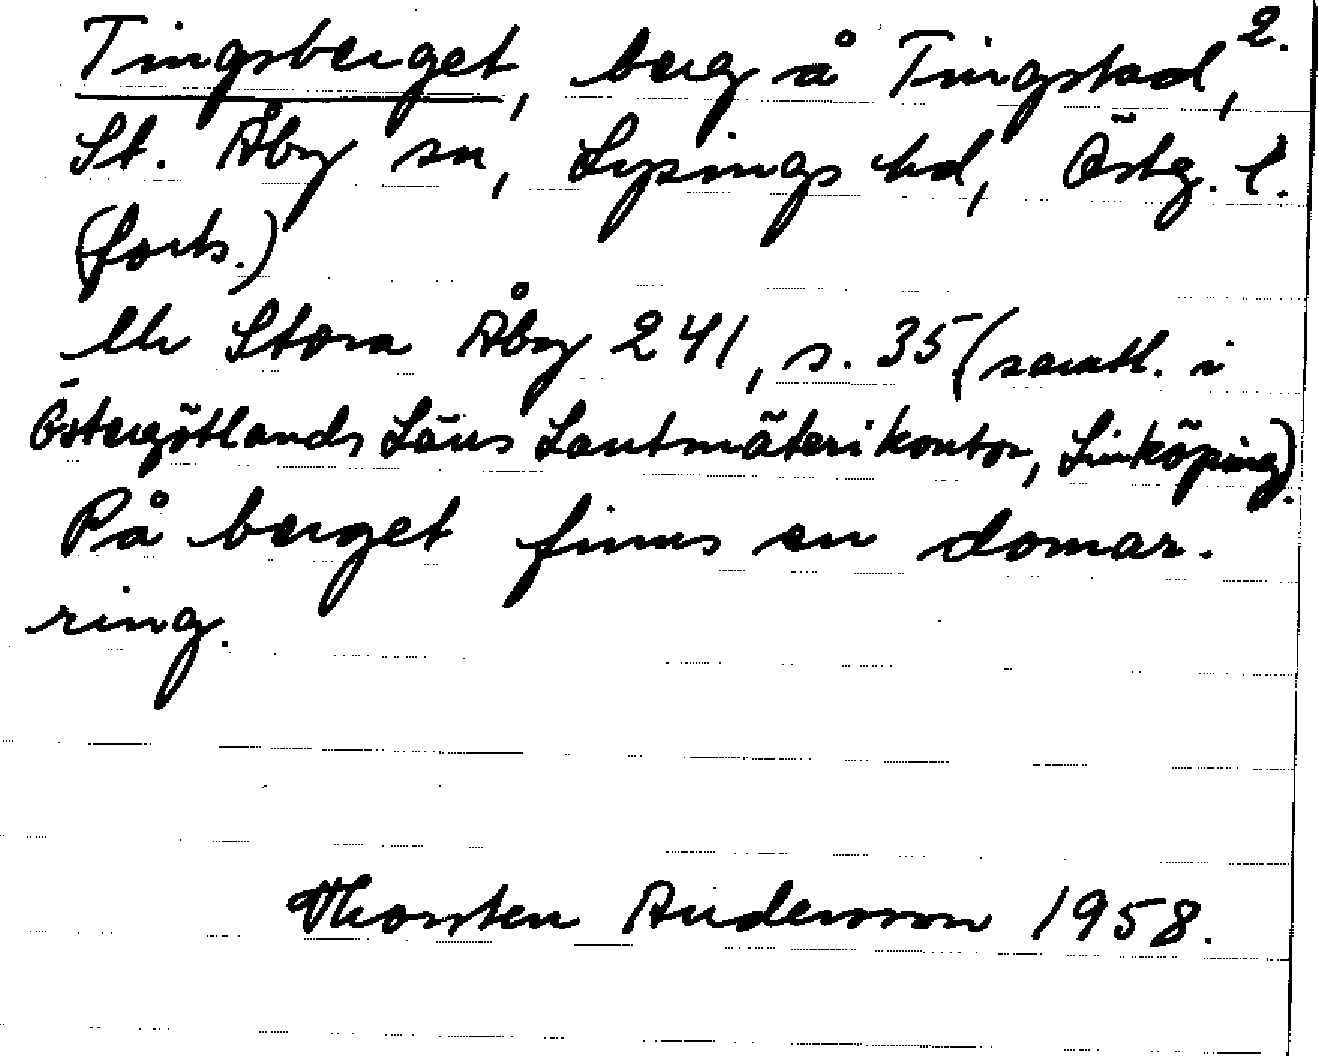 Tingsberget, berg å Tingstad, 2.
St. Åby sn, Lysings hd, Östg. l.
(forts.)
Stora Åby 241, s. 35 (samtl. i
Östergötlands Läns Lantmäterikontor, Linköping).
På berget finns en domar-
ring.
Thorsten Andersson 1958.